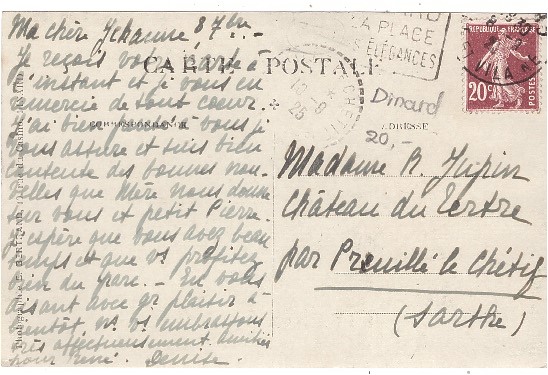 Ma chère Jehanne 8 7bre
Je reçois vos à
l'instant et je vous en
remercie de tout coeur.
J'ai bien à vous je
vous assure et suis bien
contente des bonnes nou-
velles que Mère nous donne
sur vous et petit Pierre.
J'espère que vous avez beau
temps et que vs profitez
bien du parc. – En vous
disant avec gr plaisir à
bientôt, ns vs embrassons
très affectueusement. amitiés
pour René. Denise.
CARTE POSTALE
CORRESPONDANCE
ADRESSE
LA PLACE
ÉLÉGANCES
10-9
25
Dinard
20,-
RÉPUBLIQUE FRANÇAISE
20c
Madame R Jupin
Château du Tertre
par Pruillé le Chétif
(Sarthe)